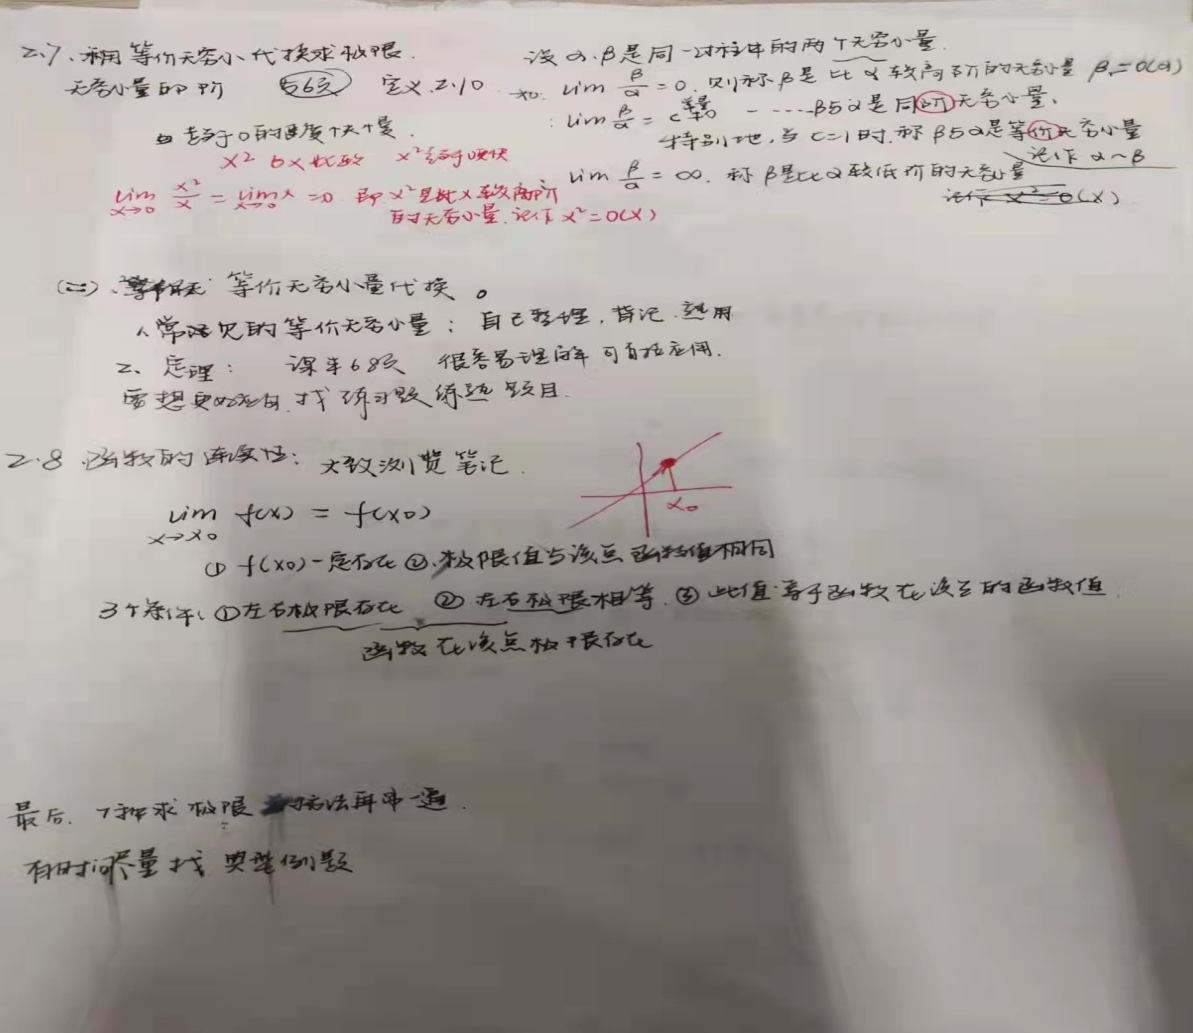 2.7、利用等价无穷小代换求极限.
无穷小量的阶 56页 定义 2.10
趋于0的速度快慢.
x² 与x比较 x²趋于0更快
lim x→0 x²/x = lim x→0 x =0 即 x²是比x较高阶
的无穷小量.记作 x²=o(x)
设 α、β是同一过程中的两个无穷小量.
如: lim β/α =0. 则称β是比α较高阶的无穷小量 β=o(α)
: lim β/α = c ≠0 ------β与α是同阶无穷小量、
特别地,当 c=1时.称 β与α是等价无穷小量
记作 α~β
lim β/α = ∞. 称 β是比α较低阶的无穷小量
记作 x²=o(x)
(二)、等价无穷小量代换 。
1、常见的等价无穷小量: 自己整理,背记.熟用
2、定理: 课本68页 很容易理解 可直接应用.
找练习题练熟题目.
2.8 函数的连续性: 大致浏览笔记.
lim x→x₀ f(x) = f(x₀)
x₀
① f(x₀)一定存在 ②、极限值与该点函数值相同
3个条件: ①左右极限存在 ② 左右极限相等. ③ 此值等于函数在该点的函数值
函数在该点极限存在
最后. 7种求极限的方法再串一遍.
有时间尽量找 典型例题